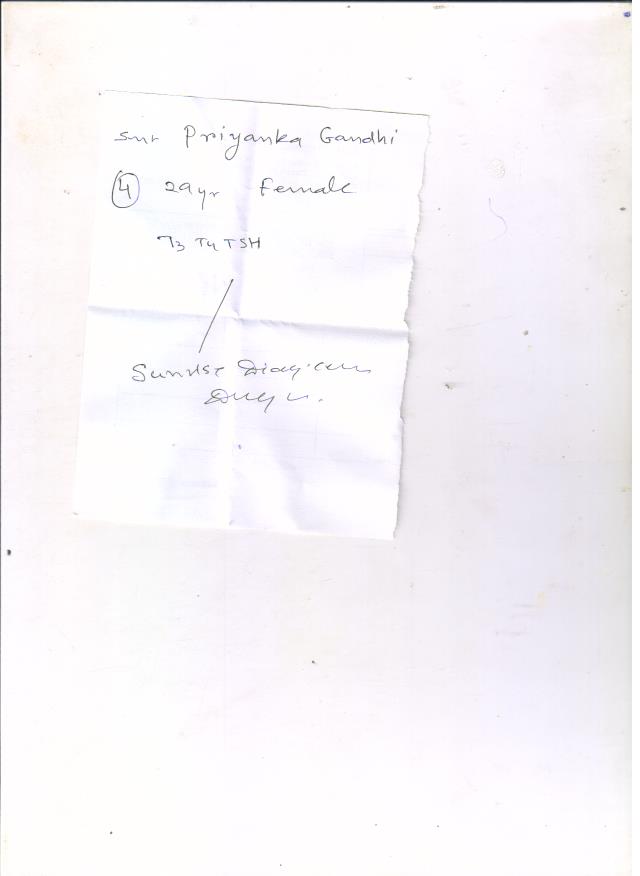 Smt Priyanka Gandhi
4 29 yr Female
T3 T4 TSH
Sunrise